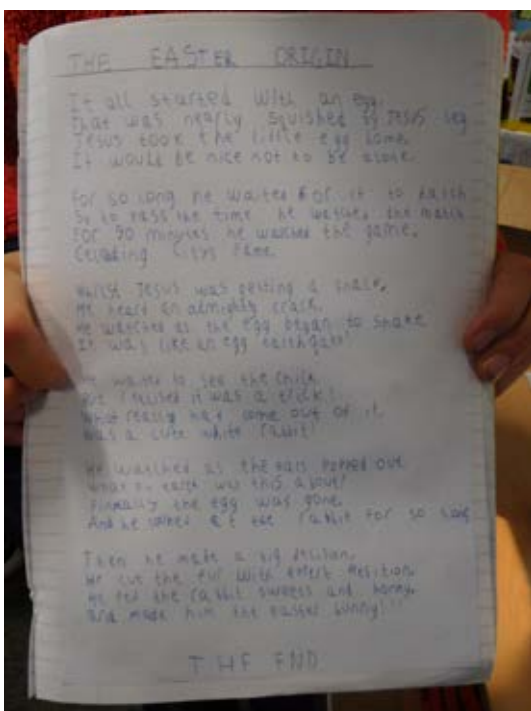 THE EASTER ORIGIN
It all started with an egg.
That was nearly squished by Jesus leg
Jesus took the little egg home.
It would be nice not to be alone.
For so long he waited for it to hatch
So to pass the time he watched the match
For 90 minutes he watched the game.
City's fame.
Whilst Jesus was getting a snack,
He heard an almighty crack.
He watched as the egg began to shake
It was like an egg
He waited to see the chick
But realised it was a trick!
What really had come out of it,
Was a cute white rabbit!
He watched as the ears popped out
What on earth was this about?
Finally the egg was gone.
And he looked at the rabbit for so long
Then he made a big decision.
He cut the fur with
He fed the rabbit sweets and honey,
and made him the easter bunny!!!
THE END